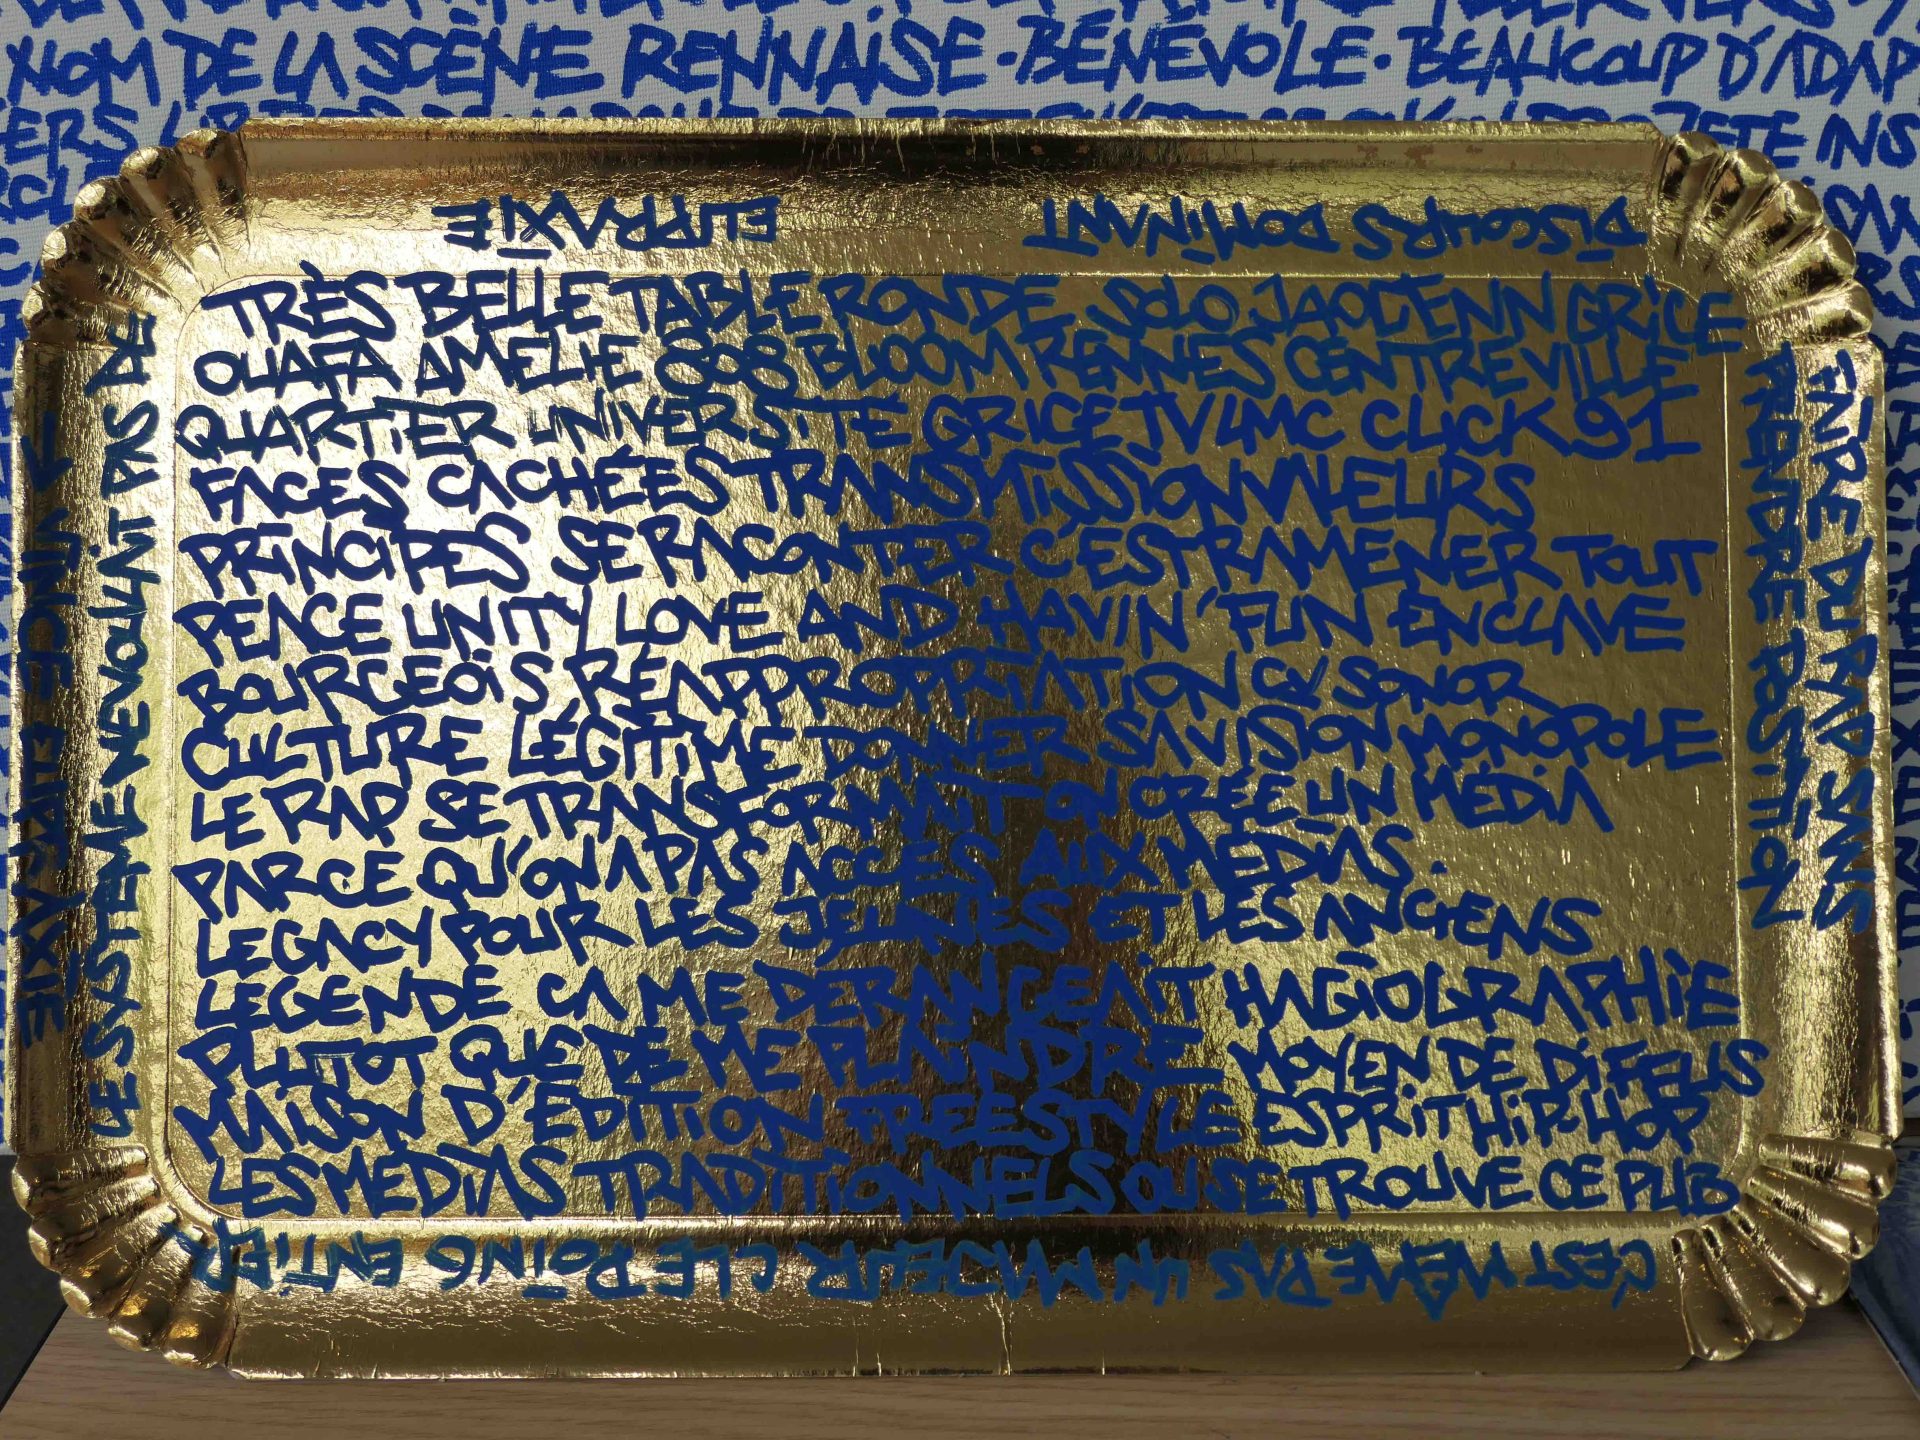 NOM DE LA SCÈNE RENNAISE · BÉNÉVOLE · BEAUCOUP D'ADAP
DISCOURS DOMINANT EUPRAXIE
TRÈS BELLE TABLE RONDE SOLO JAOUENN GRICE
OUAFA AMELIE 808 BLOOM RENNES CENTRE VILLE
QUARTIER UNIVERSITÉ GRICE JVLMC CLICK 91
FACES CACHÉES TRANSMISSION VALEURS
PRINCIPES SE RACONTER C'EST RAMENER TOUT
PEACE UNITY LOVE AND HAVIN' FUN ENCLAVE
BOURGEOIS RÉAPPROPRIATION CK SONOR
CULTURE LÉGITIME DONNER SA VISION MONOPOLE
LE RAP SE TRANSFORMAIT ON CRÉE UN MÉDIA
PARCE QU'ON A PAS ACCES AUX MÉDIAS.
LEGACY POUR LES JEUNES ET LES ANCIENS
LEGENDE CA ME DERANGEAIT HAGIOGRAPHIE
PLUTOT QUE DE ME PLAINDRE MOYEN DE DIFFUS
MAISON D'ÉDITION FREESTYLE ESPRIT HIP HOP
LES MÉDIAS TRADITIONNELS OU SE TROUVE CE PUB
FAIRE DU RAP SANS
PRENDRE POSITION
C'EST MÊME PAS UN MAJEUR C LE POING ENTIER
CE SYSTEME NE VOULAIT PAS DE